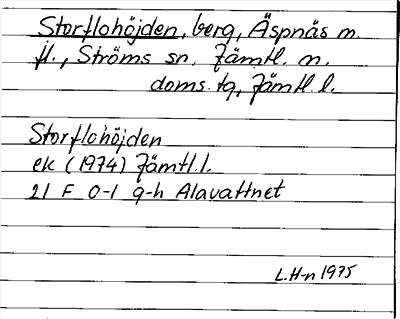 Storflohöjden, berg, Äspnäs m.
fl., Ströms sn, Jämtl. n.
doms. tg, Jämtl. l.
Storflohöjden
ek (1974) Jämtl. l.
21 F 0-1 g-h Alavattnet
L. H-n 1975